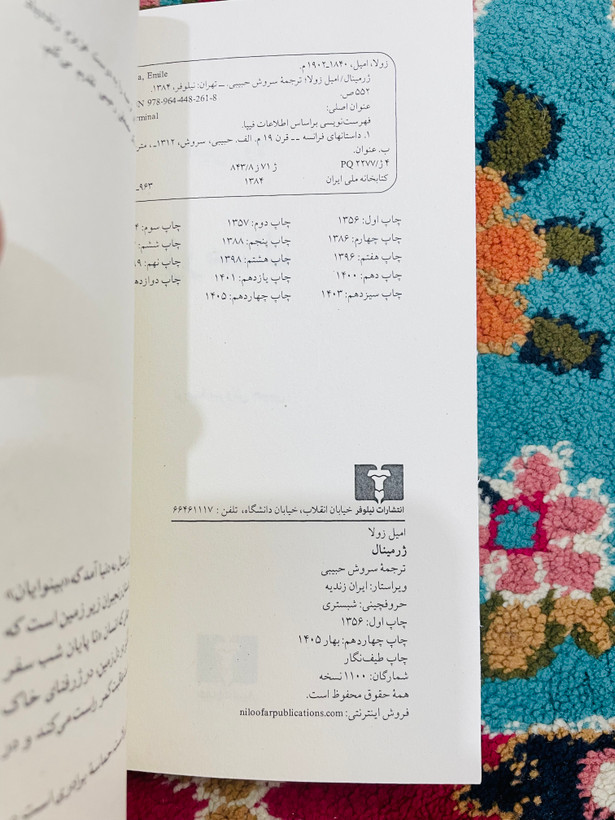 زولا، امیل، ۱۸۴۰ـ۱۹۰۲ م.
ژرمینال / امیل زولا؛ ترجمهٔ سروش حبیبی. ـ تهران: نیلوفر، ۱۳۸۴.
۵۵۲ ص.
978-964-448-261-8
عنوان اصلی:
فهرست‌نویسی براساس اطلاعات فیپا.
۱. داستانهای فرانسه -- قرن ۱۹ م. الف. حبیبی، سروش، ۱۳۱۲ـ ،
ب. عنوان.
۴ ژ/ PQ ۲۲۷۷ ژ ۷۱ ز/ ۸۴۳/۸
کتابخانه ملی ایران ۱۳۸۴
چاپ اول: ۱۳۵۶ چاپ دوم: ۱۳۵۷ چاپ سوم:
چاپ چهارم: ۱۳۸۶ چاپ پنجم: ۱۳۸۸ چاپ ششم:
چاپ هفتم: ۱۳۹۶ چاپ هشتم: ۱۳۹۸ چاپ نهم:
چاپ دهم: ۱۴۰۰ چاپ یازدهم: ۱۴۰۱
چاپ سیزدهم: ۱۴۰۳ چاپ چهاردهم: ۱۴۰۵
انتشارات نیلوفر خیابان انقلاب، خیابان دانشگاه، تلفن: ۶۶۴۶۱۱۱۷
امیل زولا
ژرمینال
ترجمهٔ سروش حبیبی
ویراستار: ایران زندیه
حروفچینی: شبستری
چاپ اول: ۱۳۵۶
چاپ چهاردهم: بهار ۱۴۰۵
چاپ طیف‌نگار
شمارگان: ۱۱۰۰ نسخه
همهٔ حقوق محفوظ است.
فروش اینترنتی: niloofarpublications.com
به دنیا آمد که «بینوایان»
زیر زمین است که
پایان شب سفر
در ژرفای خاک
راست می‌کند و در
حماسهٔ برادری است